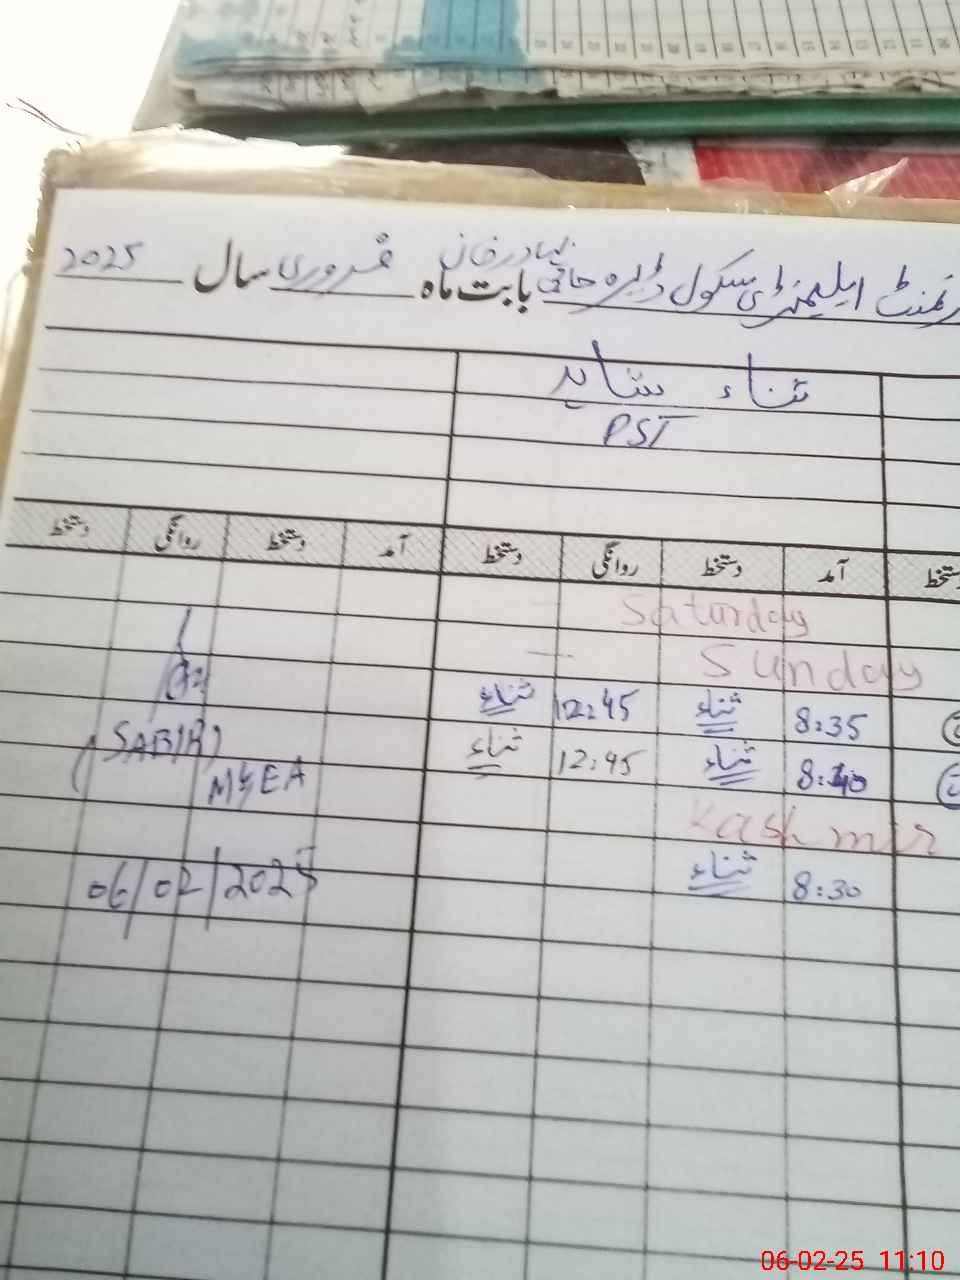 ایلیمنٹری سکول ڈیرہ حاجی بہادر خان بابت ماہ فروری سال 2025
ثناء شاہد
PST
آمد دستخط روانگی دستخط آمد دستخط روانگی دستخط
Saturday
Sunday
8:35 ثناء 12:45 ثناء
8:40 ثناء 12:45 ثناء
Kashmir
8:30 ثناء
(SABIR)
MEA
06/02/2025
06-02-25 11:10